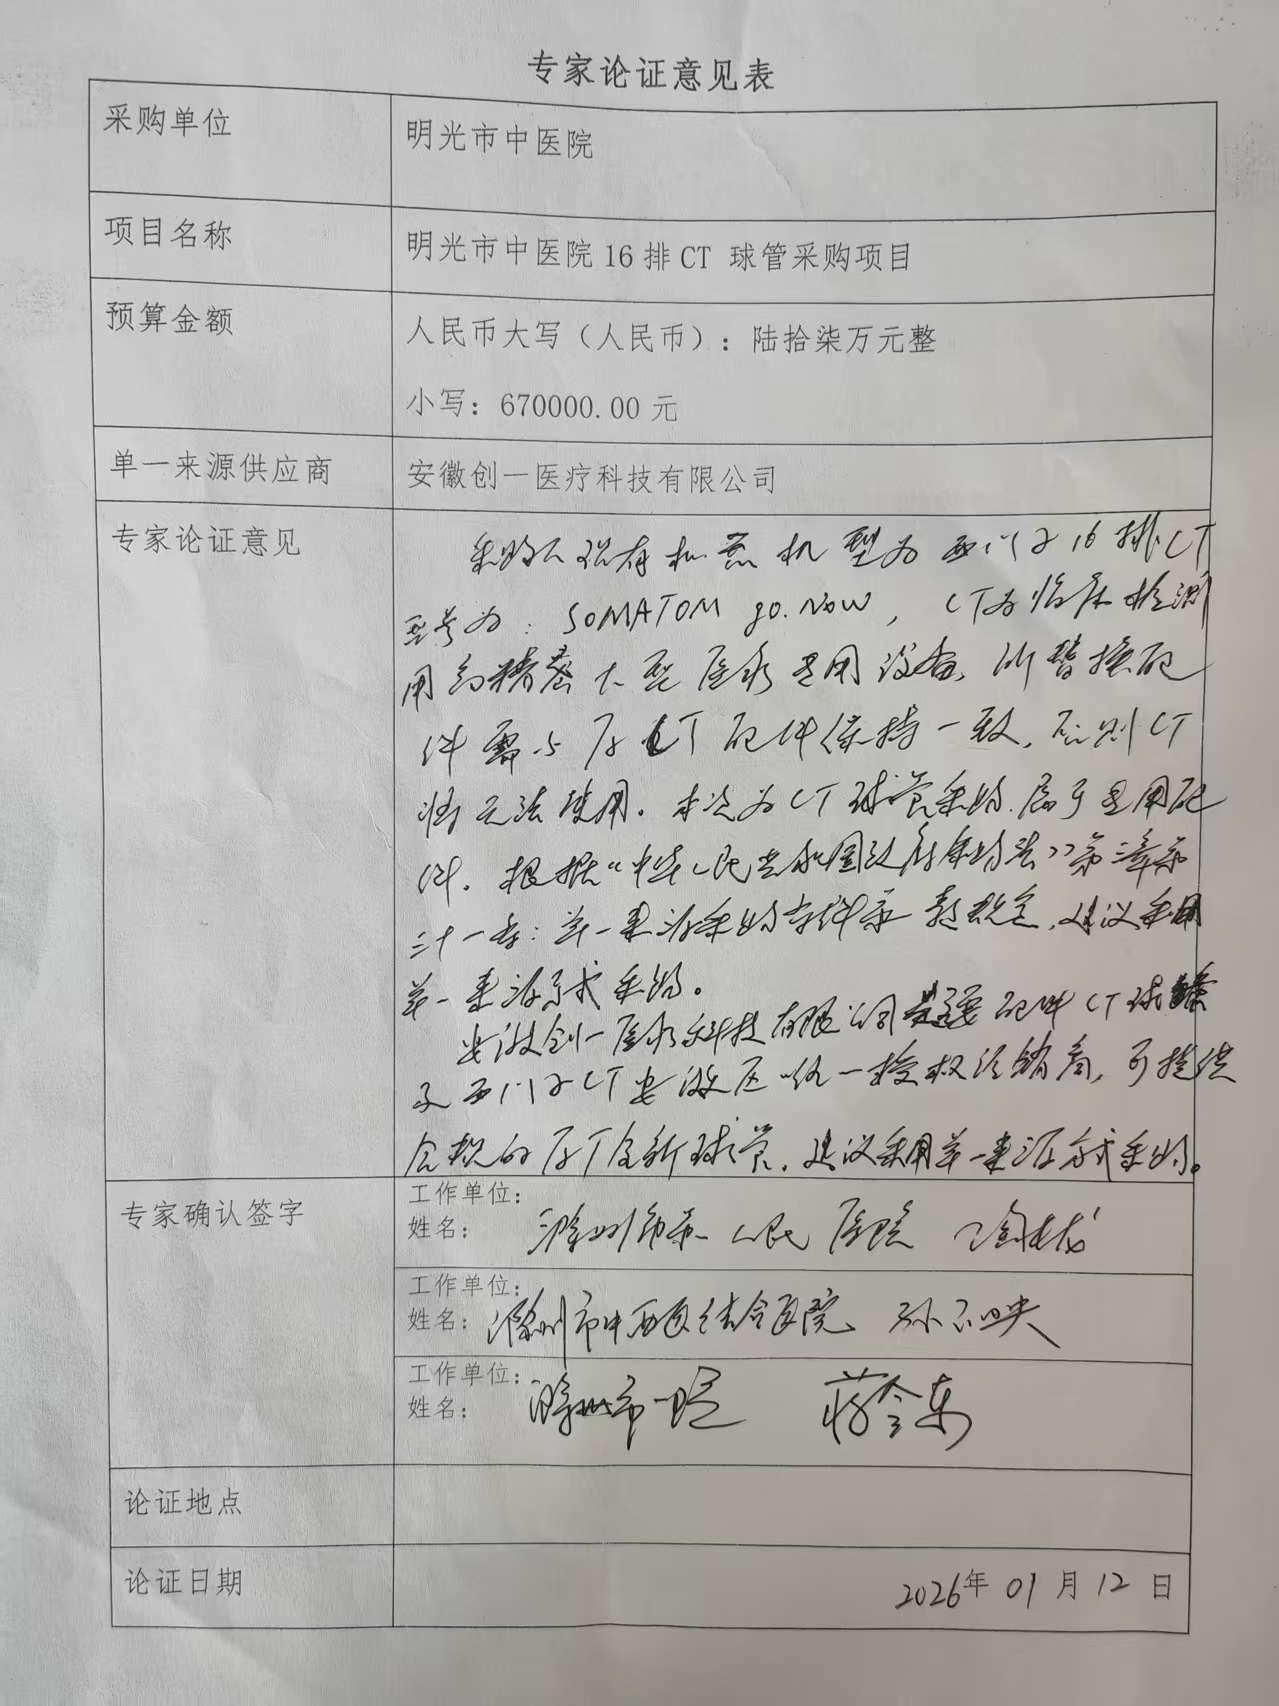 专家论证意见表
采购单位
明光市中医院
项目名称
明光市中医院16排CT 球管采购项目
预算金额
人民币大写（人民币）：陆拾柒万元整
小写：670000.00元
单一来源供应商
安徽创一医疗科技有限公司
专家论证意见
采购人现有机器机型为西门子16排CT
型号为：SOMATOM go.Now，CT为临床检测
用的精密大型医疗专用设备，所替换配
件需与原CT配件保持一致，否则CT
将无法使用。本次为CT球管采购，属于专用配
件，根据《中华人民共和国政府采购法》第三章第
三十一条：单一来源采购 第 款规定，建议采用
单一来源方式采购。
安徽创一医疗科技有限公司 配件CT球
西门子CT安徽区唯一授权经销商，可提供
合规的原厂全新球管，建议采用单一来源方式采购。
专家确认签字
工作单位：
姓名： 滁州市第一人民医院
工作单位：
姓名： 滁州市中西医结合医院 孙
工作单位：
姓名： 滁州市一院 蒋令东
论证地点
论证日期
2026年01月12日